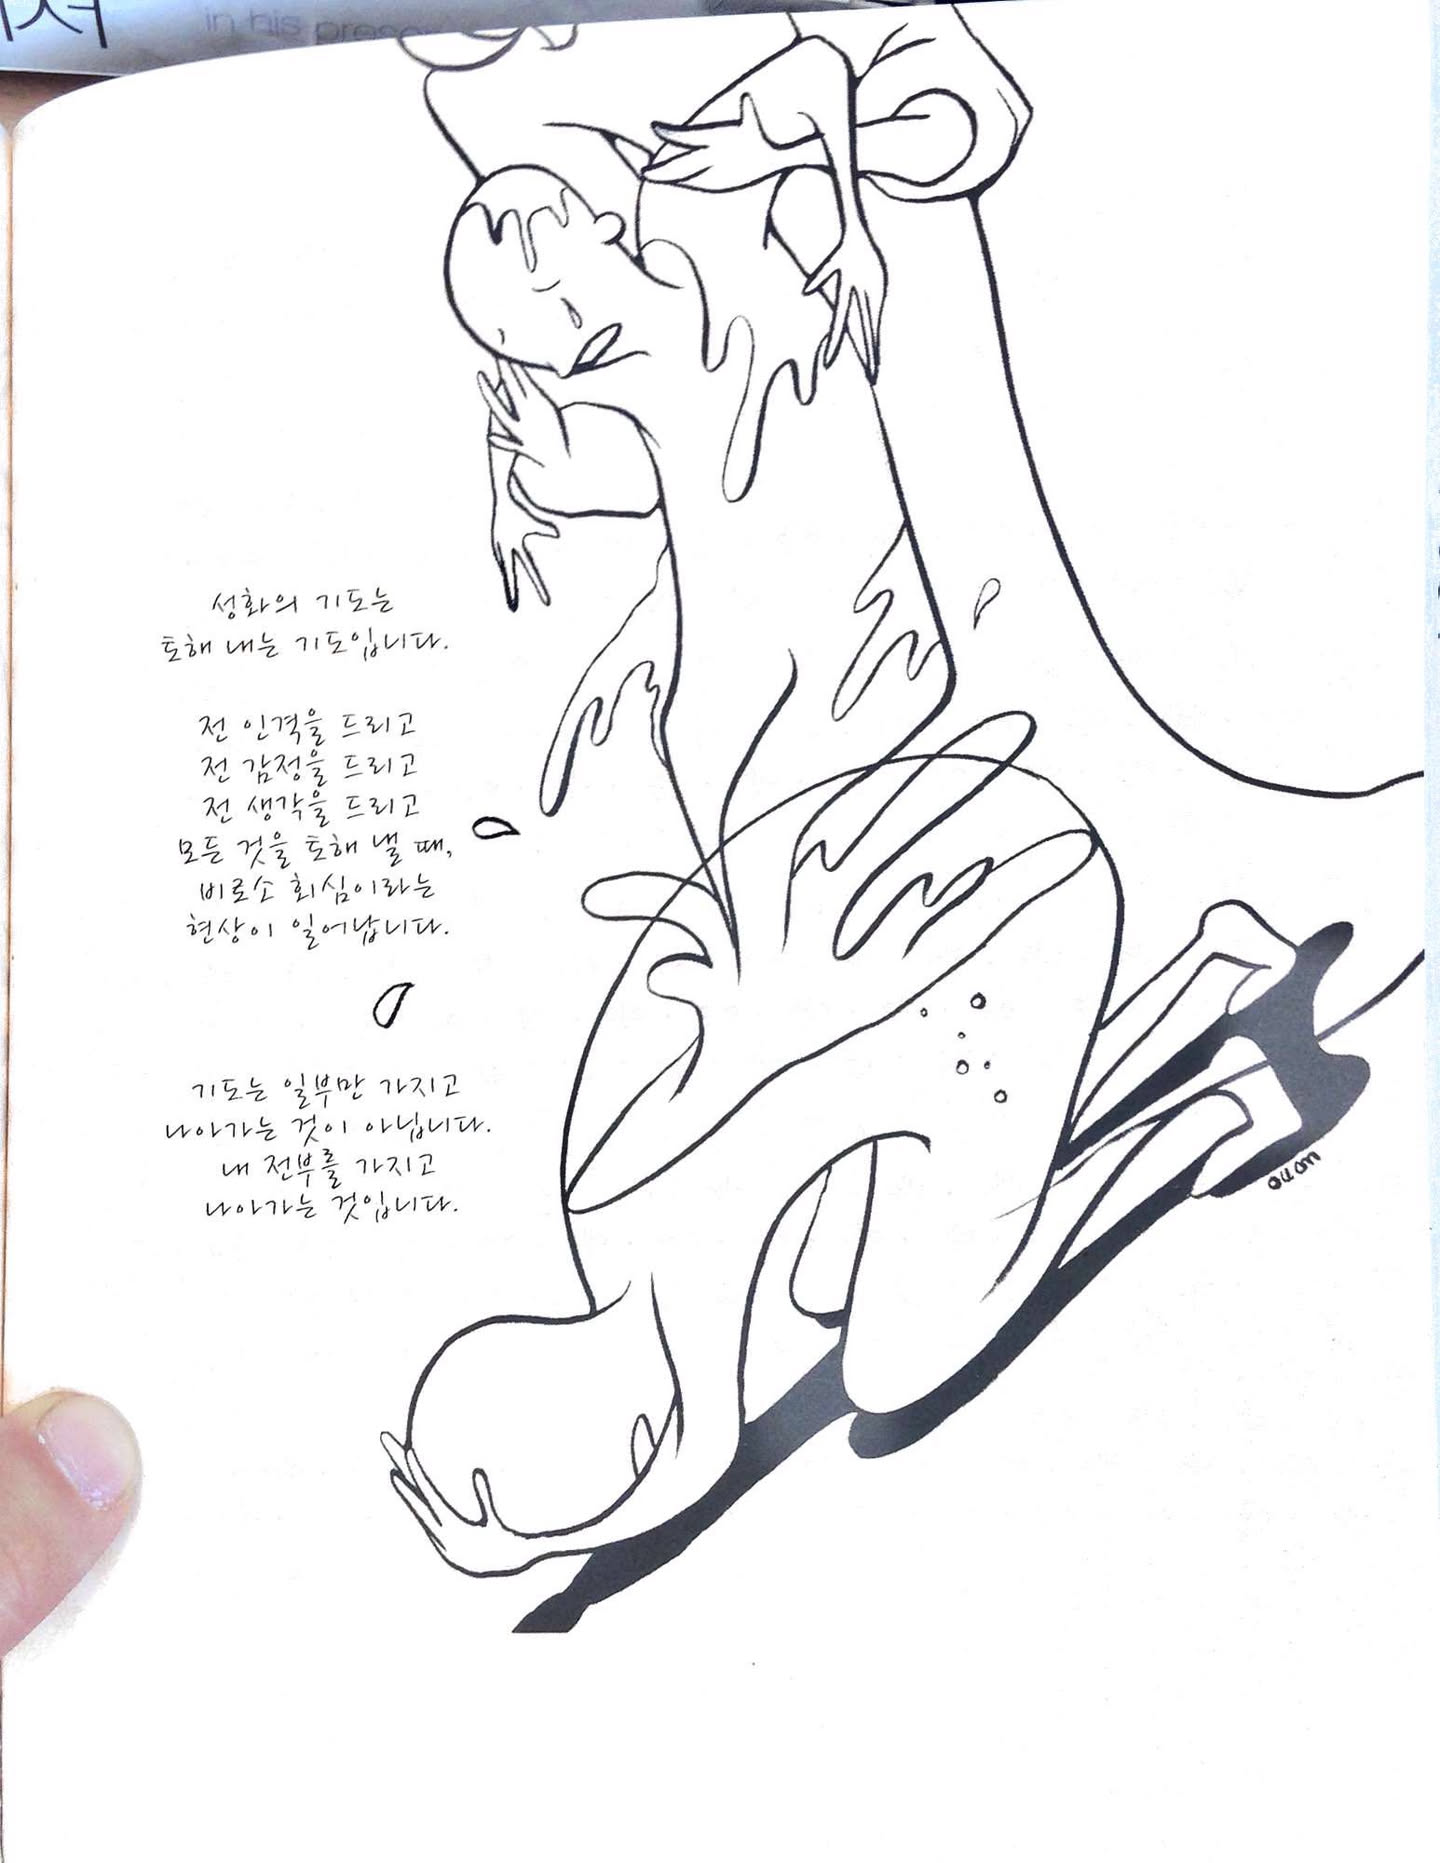 in his prese
성화의 기도는
토해 내는 기도입니다.
전 인격을 드리고
전 감정을 드리고
전 생각을 드리고
모든 것을 토해 낼 때,
비로소 회심이라는
현상이 일어납니다.
기도는 일부만 가지고
나아가는 것이 아닙니다.
내 전부를 가지고
나아가는 것입니다.